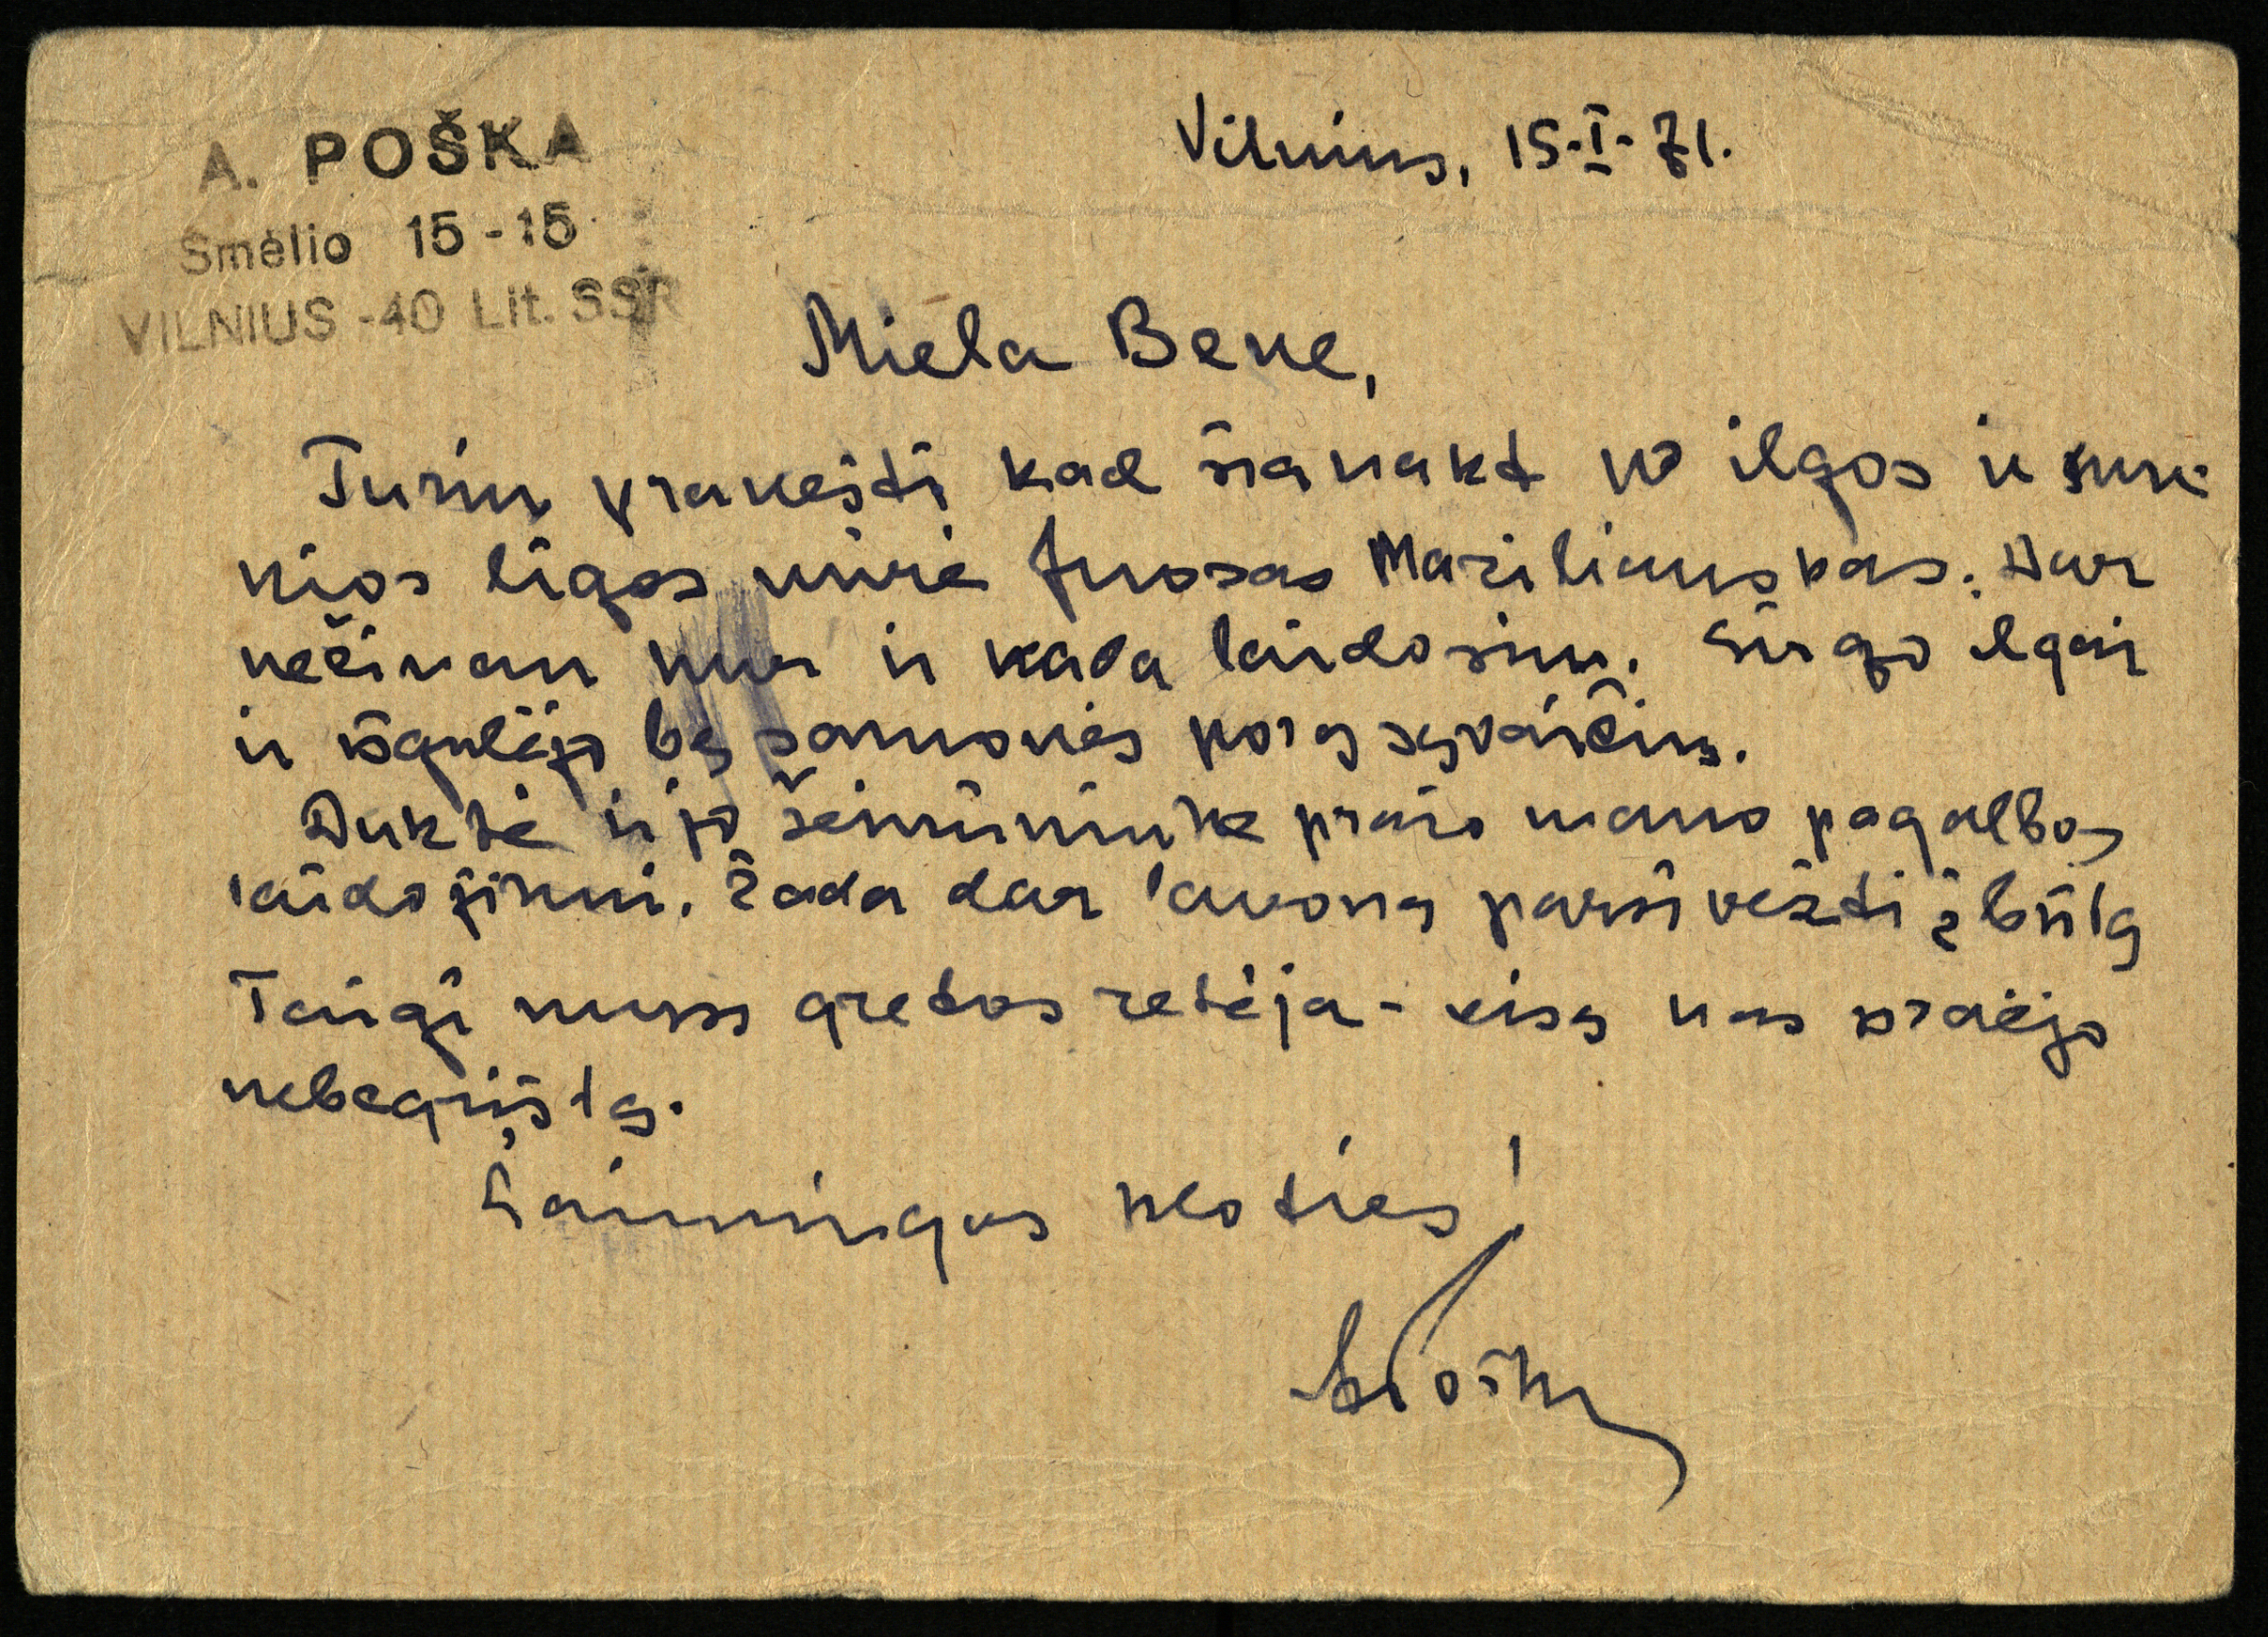 A. POŠKA
Smėlio 15-15
VILNIUS-40 Lit. SSR
Vilnius, 15-I-71.
Miela Bene,
Turiu pranešti kad šianakt po ilgos ir sun-
kios ligos mirė Juozas Maziliauskas. Dar
nežinau kur ir kada laidosim. Sirgo ilgai
ir išgulėjo be sąmonės porą savaičių.
Duktė ir jo šeimininkė prašo mano pagalbos
laidojimui. Žada dar lavoną parsivežti į butą
Taigi mūsų gretos retėja - visa kas praėjo
nebegrįšta.
Laimingos kloties!
A Poška